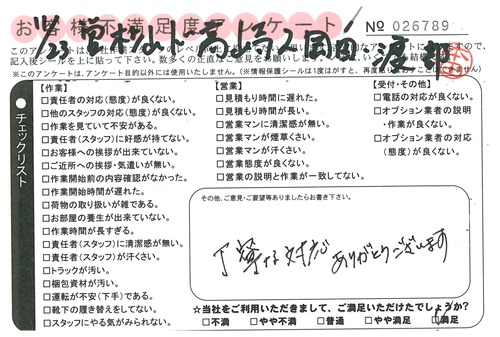 お客様不満足度アンケート
No 026789
11/23
渡部
※このアンケートは、アンケート目的以外には使用いたしません。
チェックリスト
【作業】
□責任者の対応(態度)が良くない。
□他のスタッフの対応(態度)が良くない。
□作業を見ていて不安がある。
□責任者(スタッフ)に好感が持てない。
□お客様への挨拶が出来ていない。
□ご近所への挨拶・気遣いが無い。
□作業開始前の内容確認がなかった。
□作業開始時間が遅れた。
□荷物の取り扱いが雑である。
□お部屋の養生が出来ていない。
□作業時間が長すぎる。
□責任者(スタッフ)に清潔感が無い。
□責任者(スタッフ)が汗くさい。
□トラックが汚い。
□梱包資材が汚い。
□運転が不安(下手)である。
□靴下の履き替えをしてない。
□スタッフにやる気がみられない。
【営業】
□見積もり時間に遅れた。
□見積もり時間が長い。
□営業マンに清潔感が無い。
□営業マンが煙草くさい。
□営業マンが汗くさい。
□営業態度が良くない。
□営業の説明と作業が一致してない。
【受付・その他】
□電話の対応が良くない。
□オプション業者の説明・作業が良くない。
□オプション業者の対応(態度)が良くない。
その他、ご意見・ご要望等ありましたらお書き下さい。
丁寧な対応ありがとうございます
☆当社をご利用いただきまして、ご満足いただけたでしょうか?
□不満 □やや不満 □普通 □やや満足 □満足